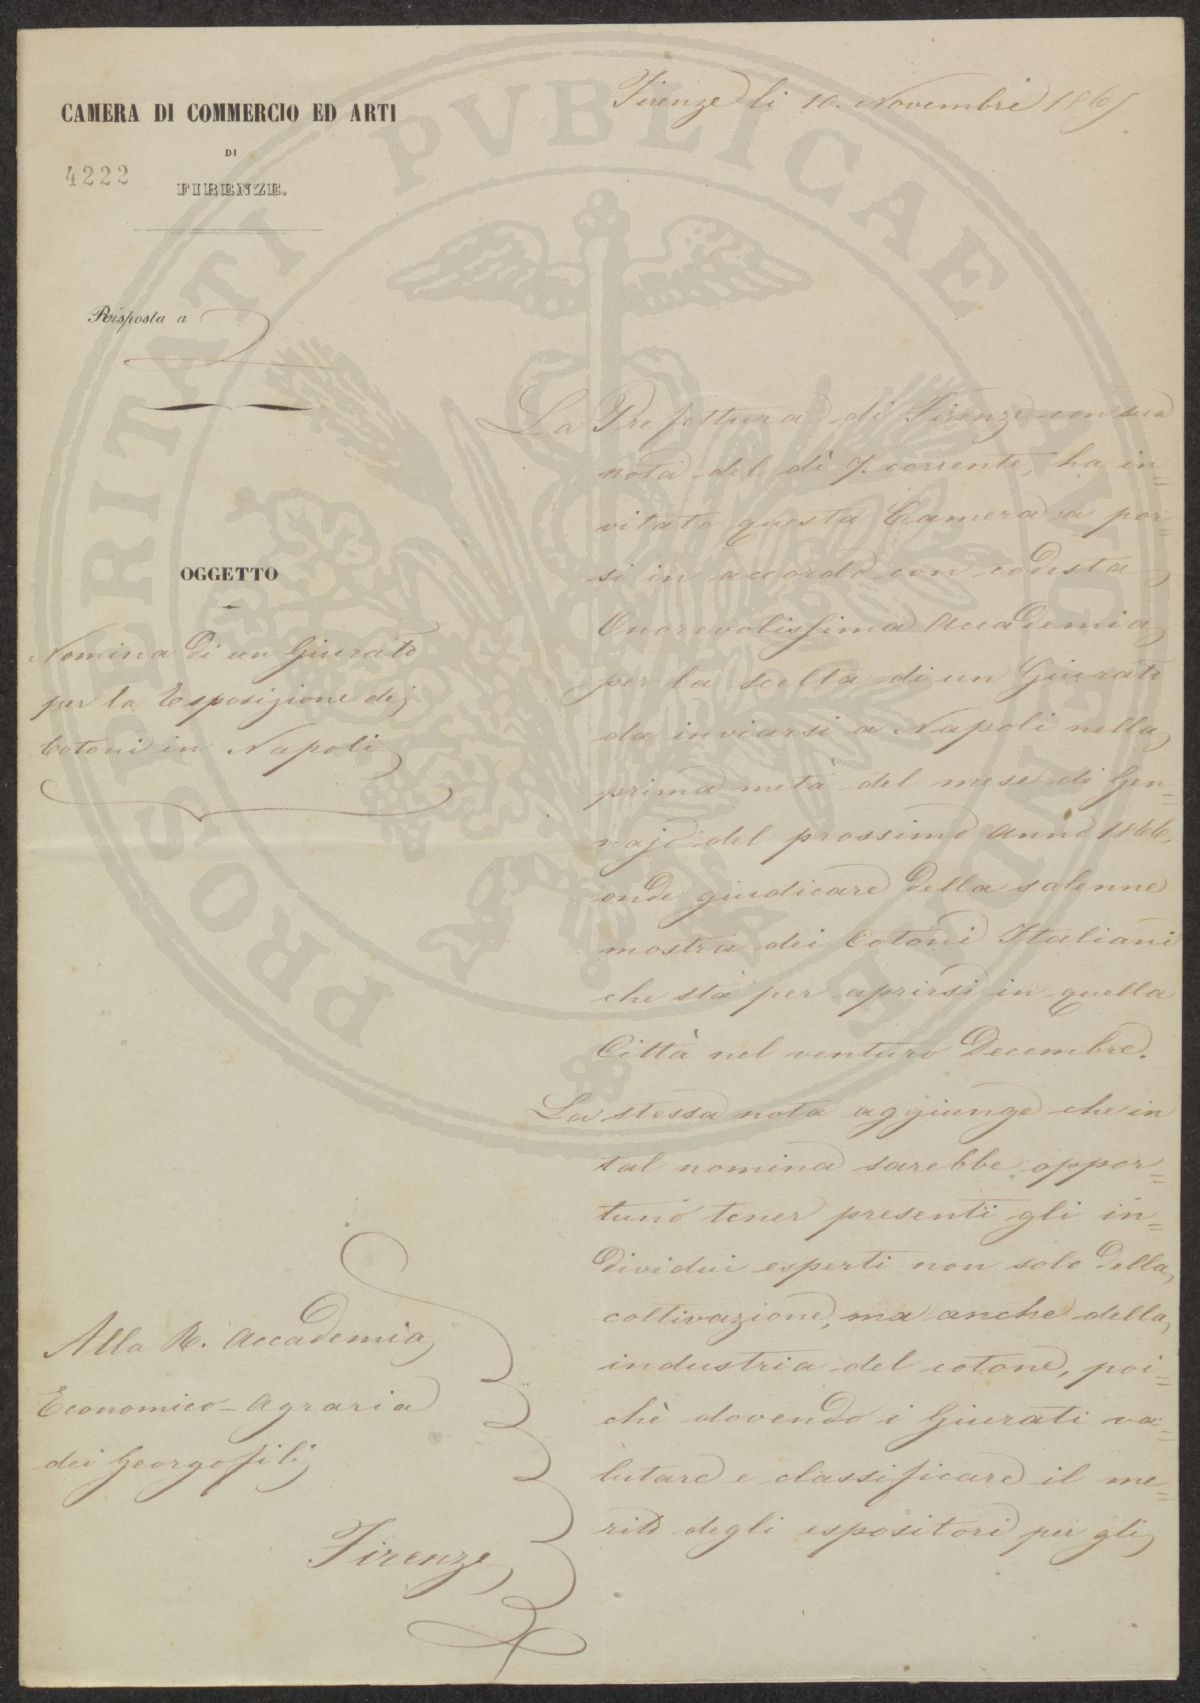 CAMERA DI COMMERCIO ED ARTI
DI
FIRENZE.
4222
Firenze li 10. Novembre 1865
Risposta a
OGGETTO
Nomina di un Giurato
per la Esposizione dei
Cotoni in Napoli
La Prefettura di Firenze con sua
nota del dì 7. corrente, ha in=
vitato questa Camera a por=
si in accordo con codesta
Onorevolissima Accademia
per la scelta di un Giurato
da inviarsi a Napoli nella
prima metà del mese di Gen=
najo del prossimo Anno 1866,
onde giudicare della solenne
mostra dei Cotoni Italiani
che stà per aprirsi in quella
Città nel venturo Decembre.
La stessa nota aggiunge che in
tal nomina sarebbe oppor=
tuno tener presenti gli in=
dividui esperti non solo della
coltivazione, ma anche della
industria del cotone, poi=
chè dovendo i Giurati va=
lutare e classificare il me=
rito degli espositori per gli
Alla R. Accademia
Economico-Agraria
dei Georgofili
Firenze
PROSPERITATI PVBLICAE AVGENDAE